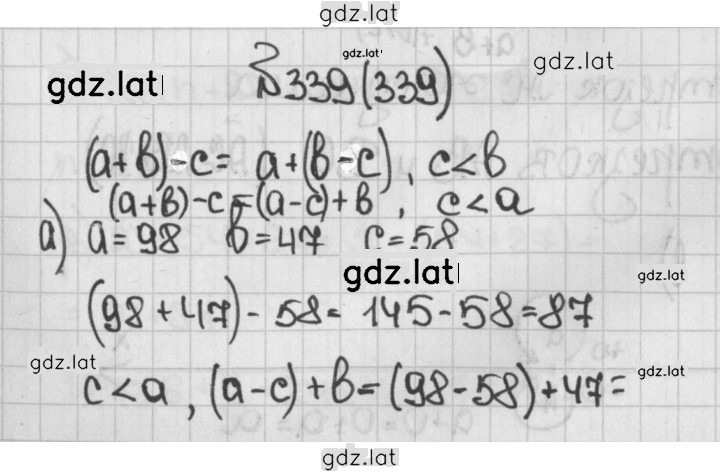 gdz.lat
gdz.lat
gdz.lat
gdz.lat
№339(339)
(a+b)-c= a+(b-c), c<b
(a+b)-c=(a-c)+b, c<a
a) a=98 b=47 c=58
gdz.lat
gdz.lat
(98+47)-58= 145-58=87
gdz.lat
gdz.lat
c<a, (a-c)+b=(98-58)+47=
gdz.lat